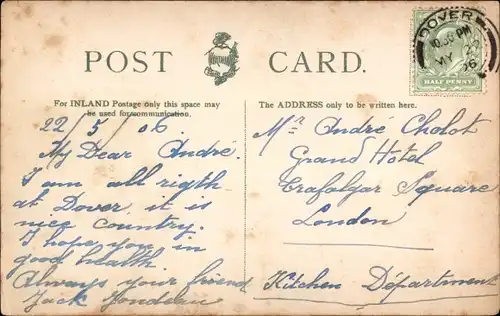 POST CARD.
For INLAND Postage only this space may
be used for communication.
The ADDRESS only to be written here.
DOVER
10.30 PM
MY
06
HALF PENNY
22/5/06.
My Dear André.
I am all rigth
at Dover, it is
nice country.
I hope you in
good health.
Always your friend
Jack
Mr André Cholot
Grand Hotel
Trafalgar Square
London
Kitchen Département